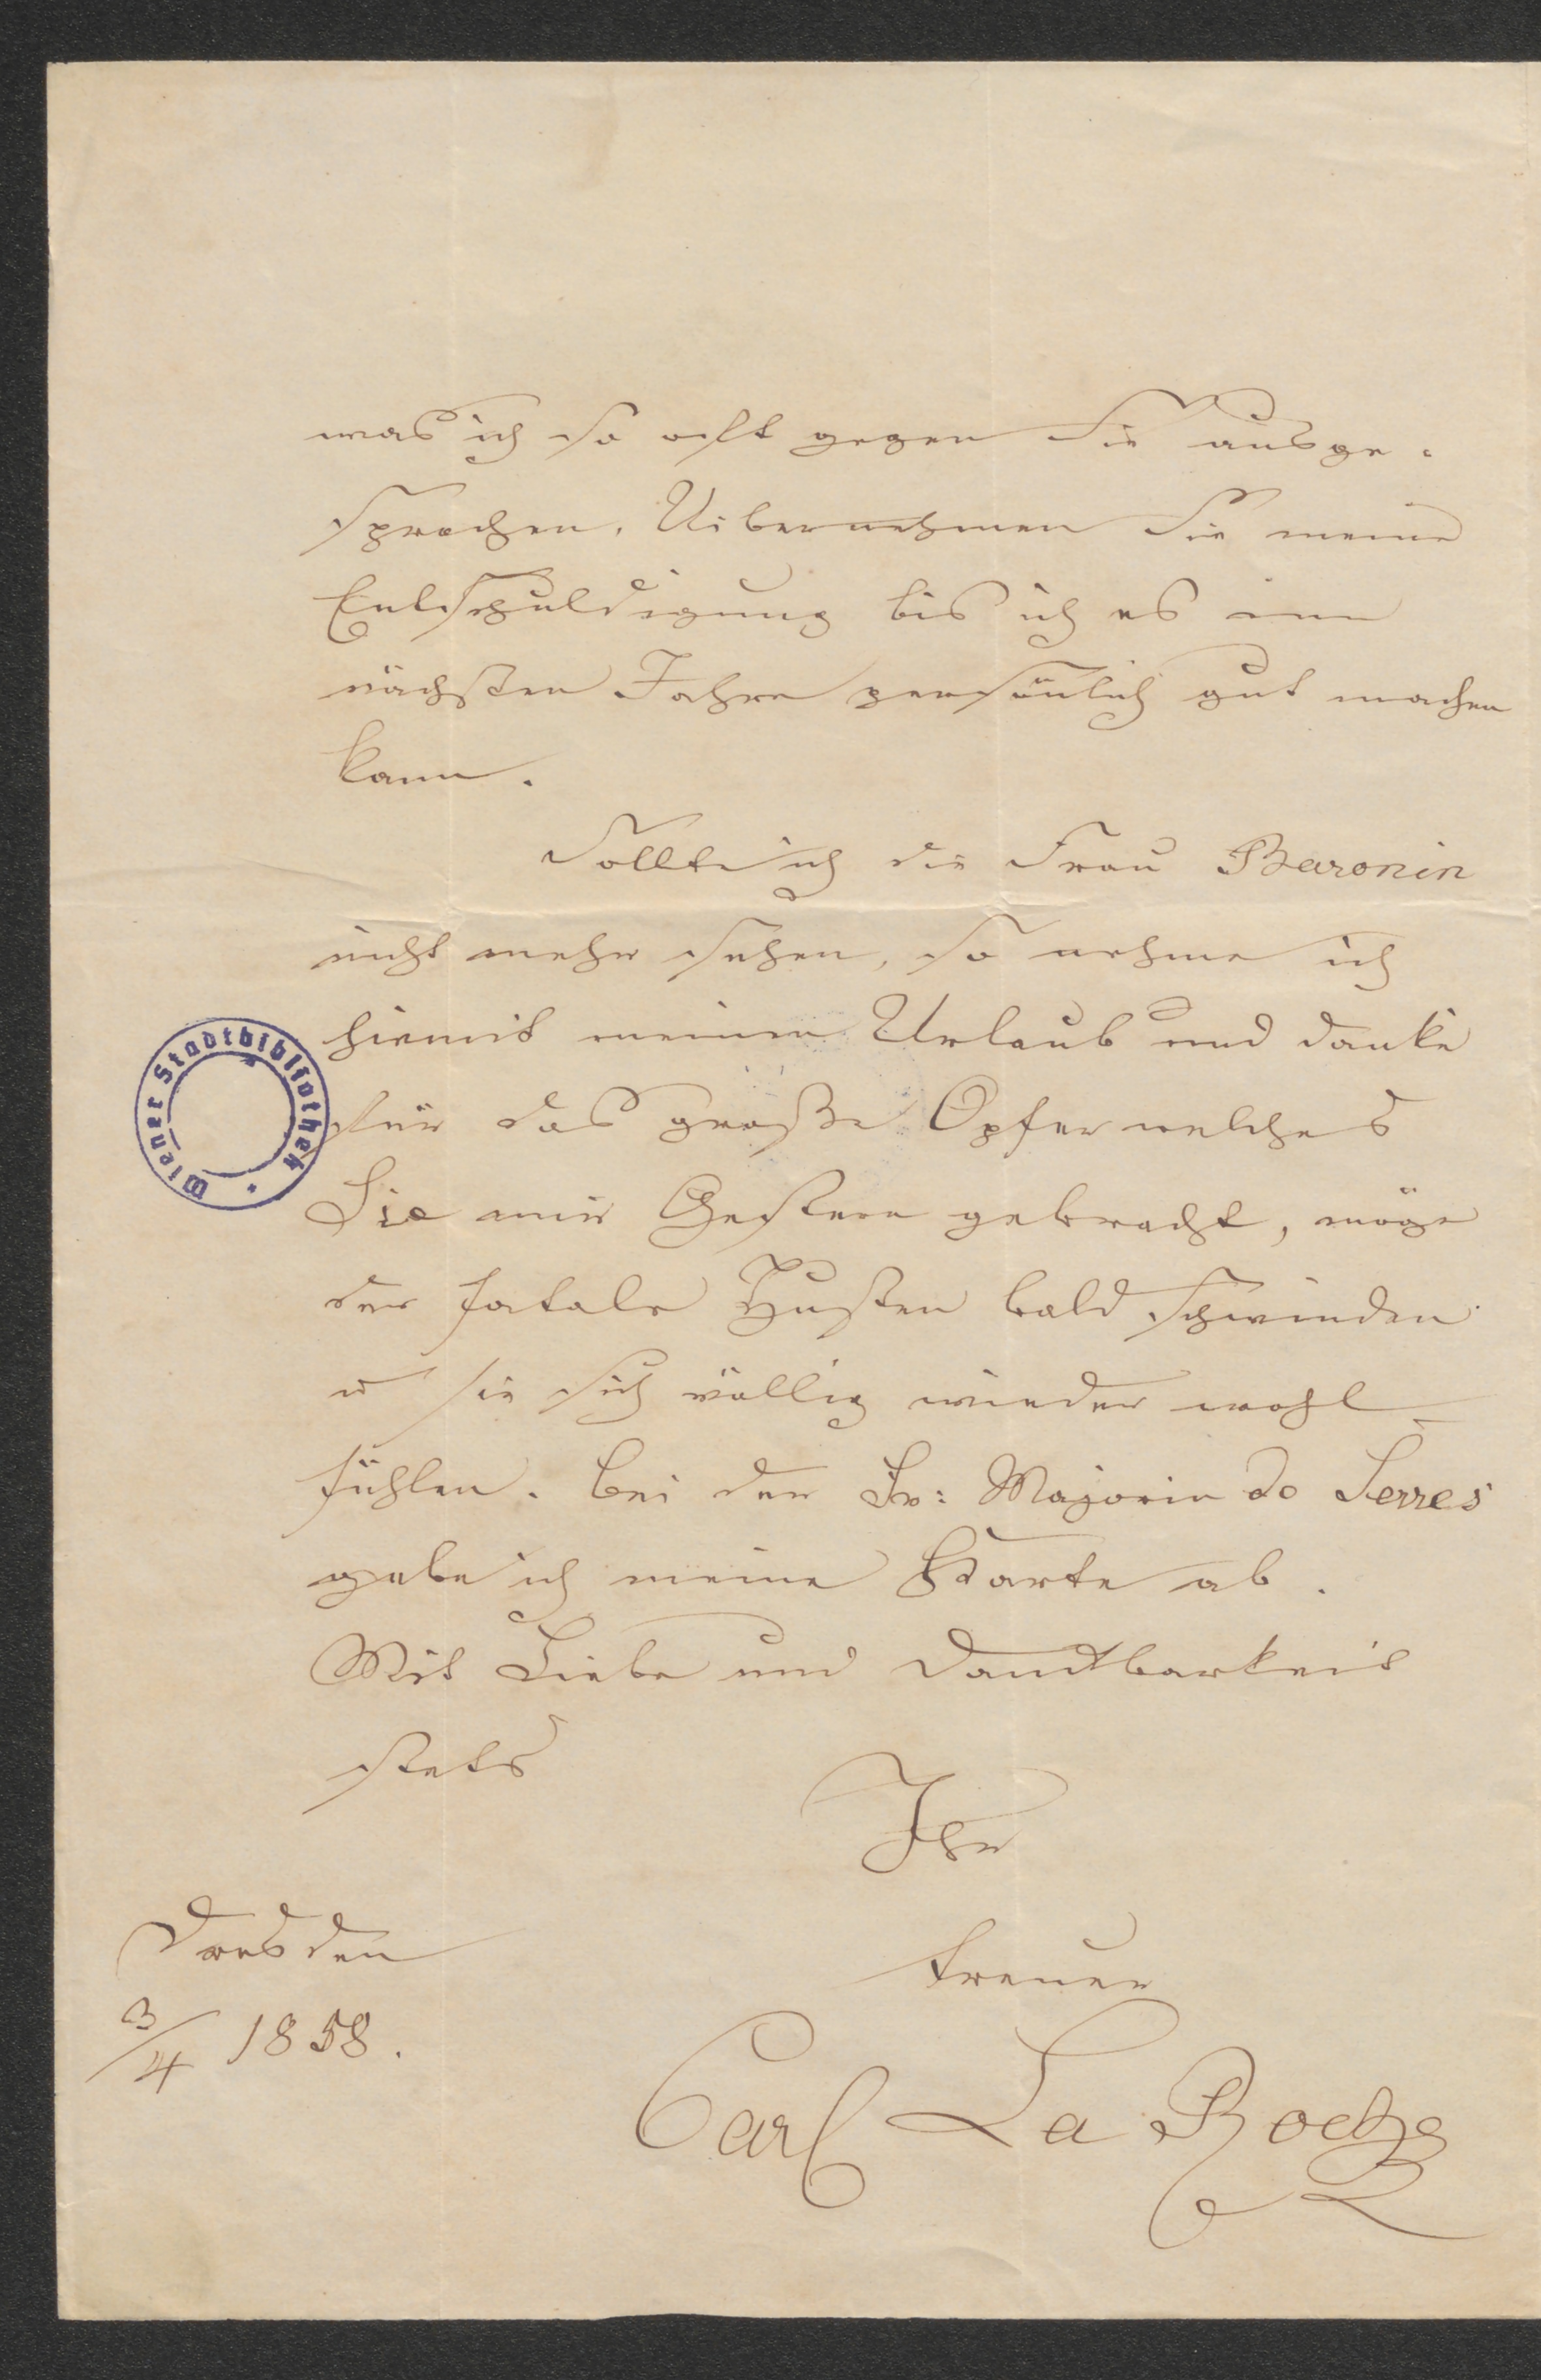 was ich so oft gegen Sie ausge-
sprochen. Uibernehmen Sie meine
Entschuldigung bis ich es im
nächsten Jahre persönlich gut machen
kann.
Sollte ich die Frau Baronin
nicht mehr sehen, so nehme ich
hiemit meinen Urlaub und danke
für das große Opfer welches
Sie mir Gestern gebracht, möge
der fatale Husten bald schwinden
u sie sich völlig wieder wohl
fühlen. Bei der Fr: Majorin de Serres
gebe ich meine Karte ab.
Mit Liebe und Dankbarkeit
stets
Ihr
treuer
Dresden
3/4 1858.
Carl La Roche
Wiener Stadtbibliothek